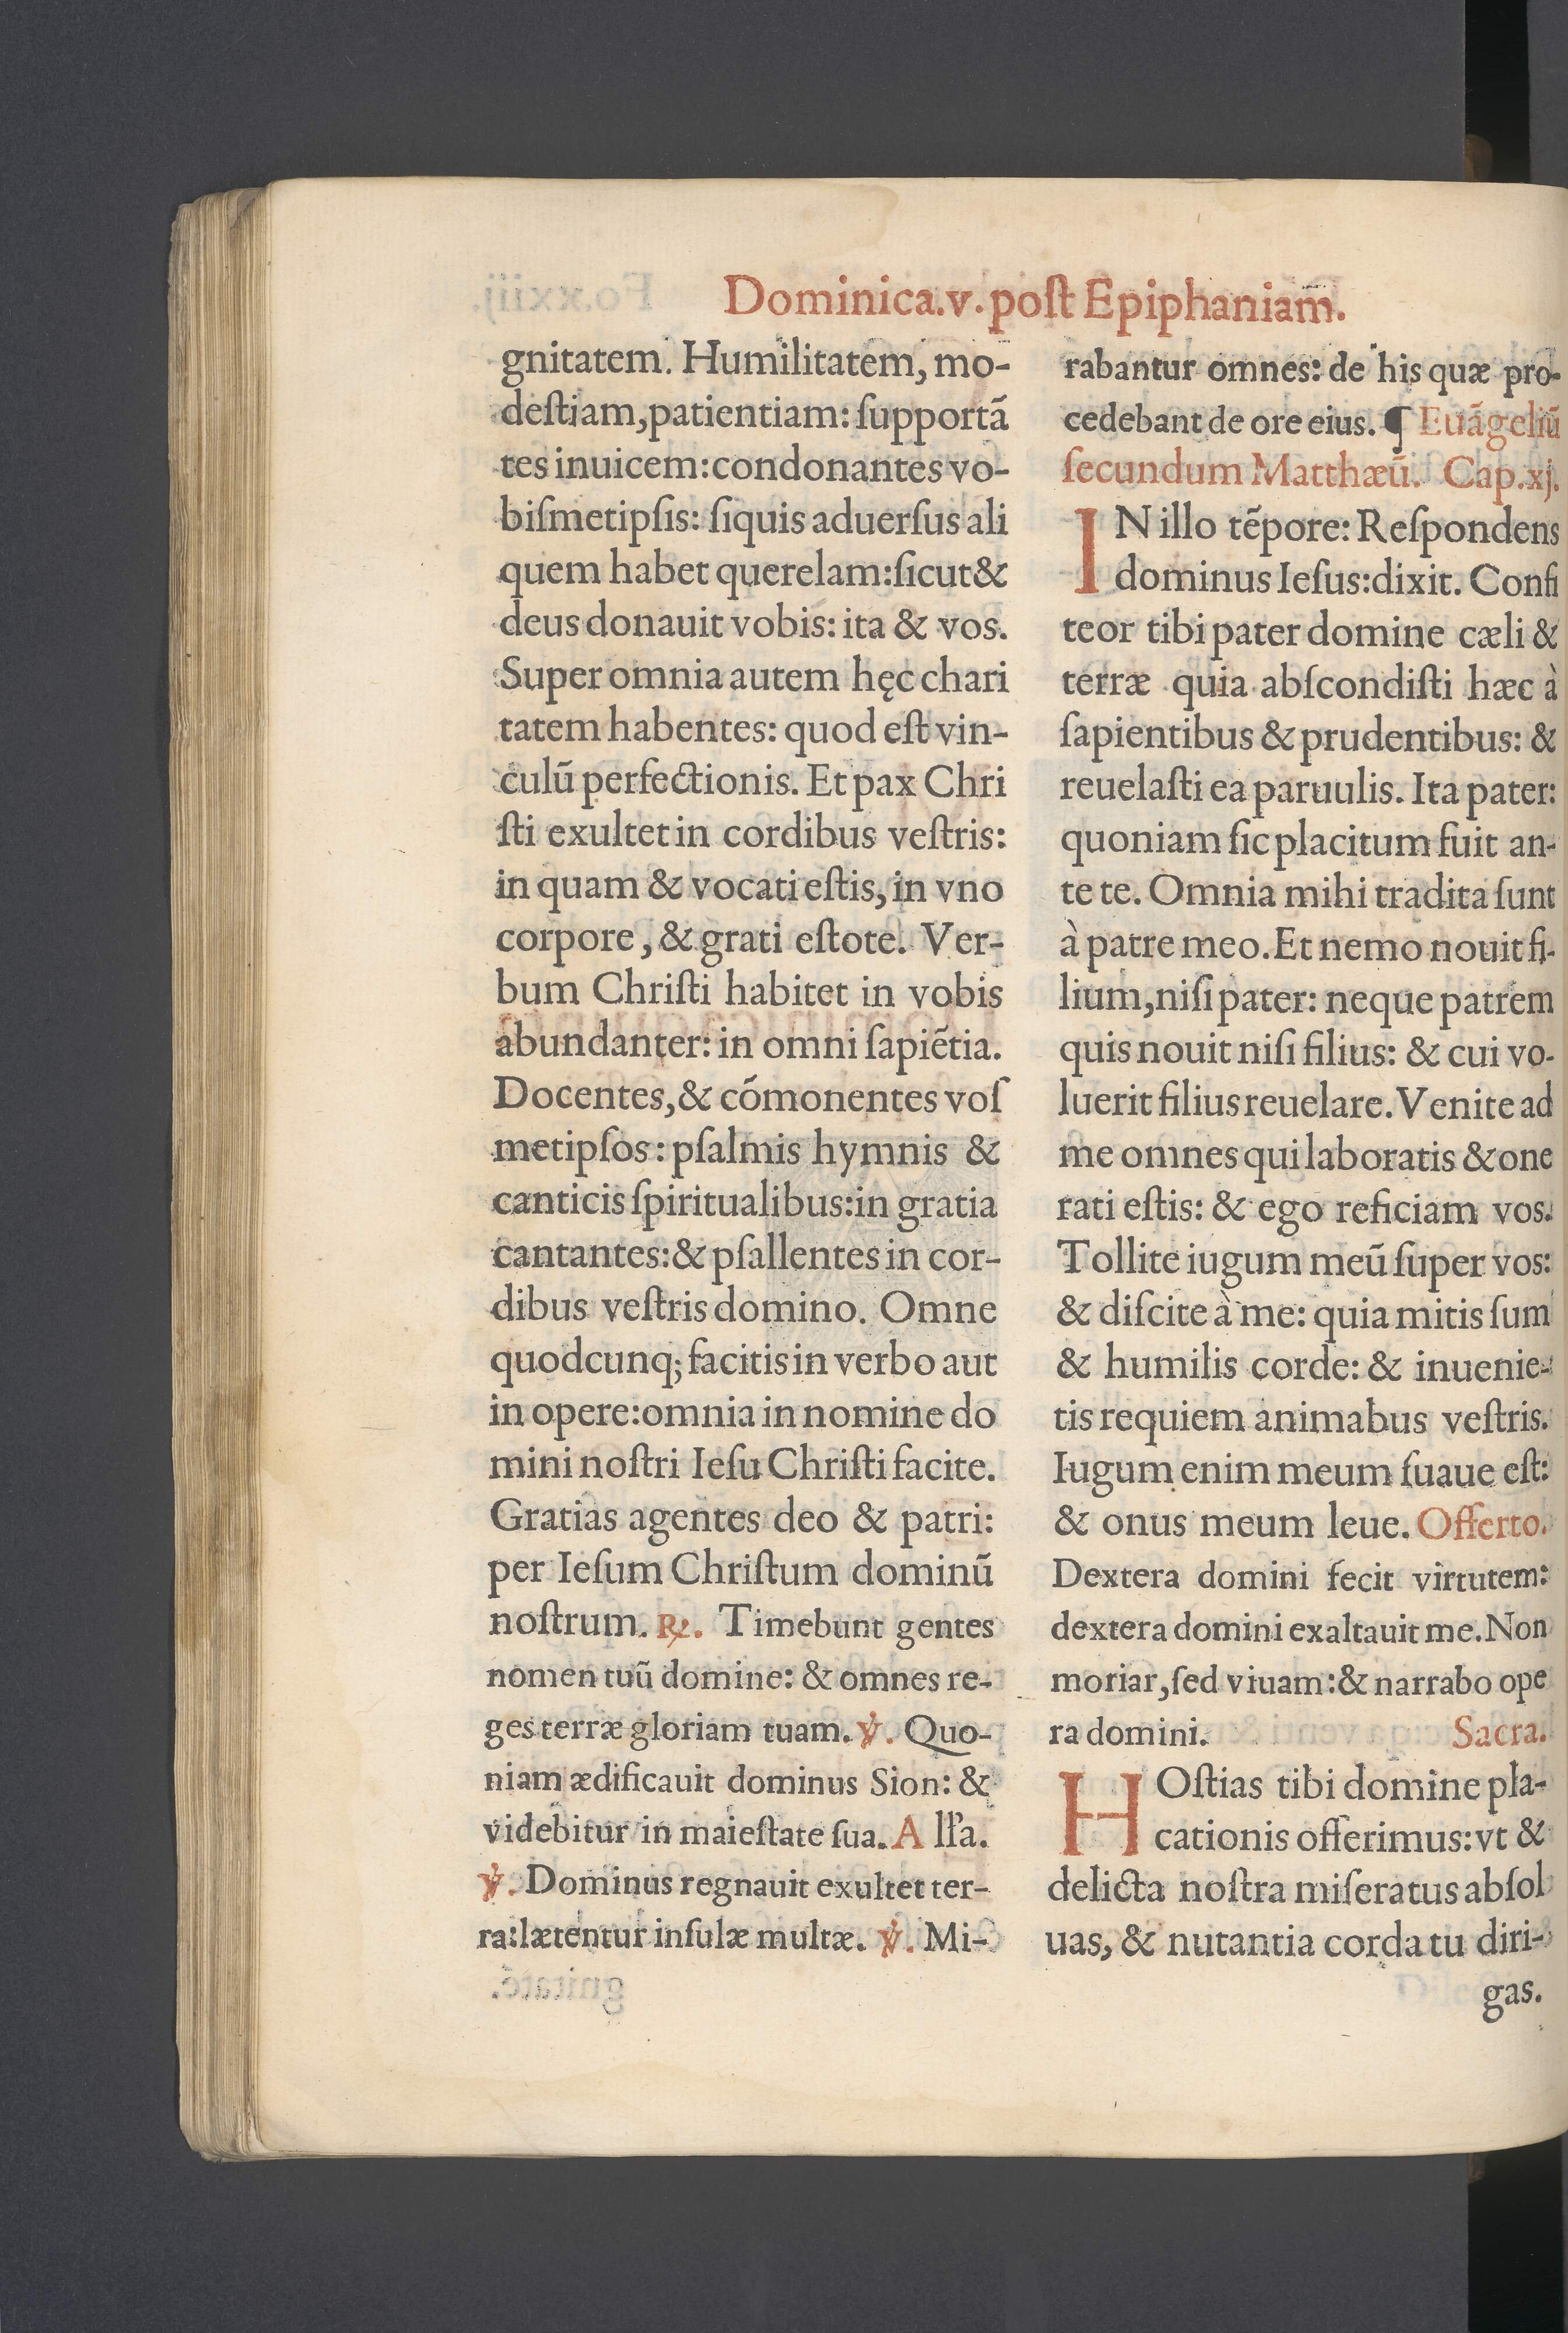 Dominica.v.poſt Epiphaniam̄.
gnitatem. Humilitatem, mo-
deſtiam,patientiam: ſupportã
tes inuicem:condonantes vo-
biſmetipſis: ſiquis aduerſus ali
quem habet querelam:ſicut &
deus donauit vobis: ita & vos.
Super omnia autem hęc chari
tatem habentes: quod eſt vin-
culũ perfectionis. Et pax Chri
ſti exultet in cordibus veſtris:
in quam & vocati eſtis, in vno
corpore, & grati eſtote. Ver-
bum Chriſti habitet in vobis
abundanter: in omni ſapiẽtia.
Docentes,& cõmonentes voſ
metipſos: pſalmis hymnis &
canticis ſpiritualibus:in gratia
cantantes:& pſallentes in cor-
dibus veſtris domino. Omne
quodcunq; facitis in verbo aut
in opere:omnia in nomine do
mini noſtri Ieſu Chriſti facite.
Gratias agentes deo & patri:
per Ieſum Chriſtum dominũ
noſtrum. ℟. Timebunt gentes
nomen tuũ domine: & omnes re-
ges terræ gloriam tuam. ℣. Quo-
niam ædificauit dominus Sion: &
videbitur in maieſtate ſua. A llꝉa.
℣. Dominus regnauit exultet ter-
ra:lætentur inſulæ multæ. ℣. Mi-
rabantur omnes: de his quæ pro-
cedebant de ore eius. ¶ Euãgeliũ
ſecundum Matthæũ. Cap.xj.
IN illo tẽpore: Reſpondens
dominus Ieſus:dixit. Confi
teor tibi pater domine cæli &
terræ quia abſcondiſti hæc à
ſapientibus & prudentibus: &
reuelaſti ea paruulis. Ita pater:
quoniam ſic placitum fuit an-
te te. Omnia mihi tradita ſunt
à patre meo.Et nemo nouit fi-
lium,niſi pater: neque patrem
quis nouit niſi filius: & cui vo-
luerit filius reuelare. Venite ad
me omnes qui laboratis & one
rati eſtis: & ego reficiam vos.
Tollite iugum meũ ſuper vos:
& diſcite à me: quia mitis ſum
& humilis corde: & inuenie-
tis requiem animabus veſtris.
Iugum enim meum ſuaue eſt:
& onus meum leue. Offerto.
Dextera domini fecit virtutem:
dextera domini exaltauit me. Non
moriar, ſed viuam:& narrabo ope
ra domini. Sacra.
HOſtias tibi domine pla-
cationis offerimus: vt &
delicta noſtra miſeratus abſol
uas, & nutantia corda tu diri-
gas.